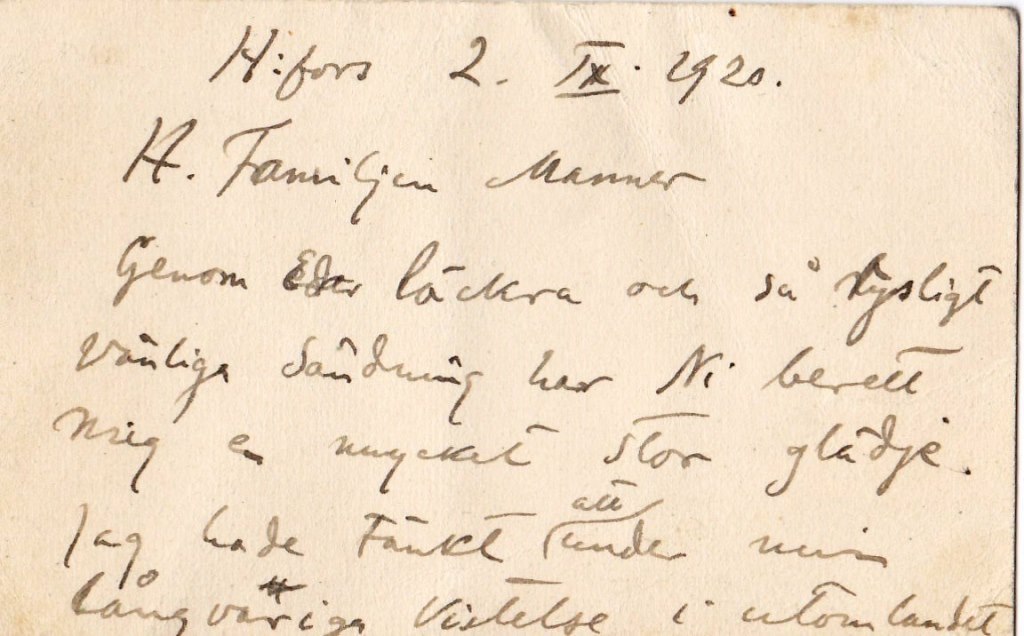 H:fors 2. IX. 1920.
H. Familjen Manner
Genom Eder läckra och så rysligt
vänliga sändning har Ni berett
mig en mycket stor glädje.
Jag hade tänkt att under min
långvariga vistelse i utomlandet